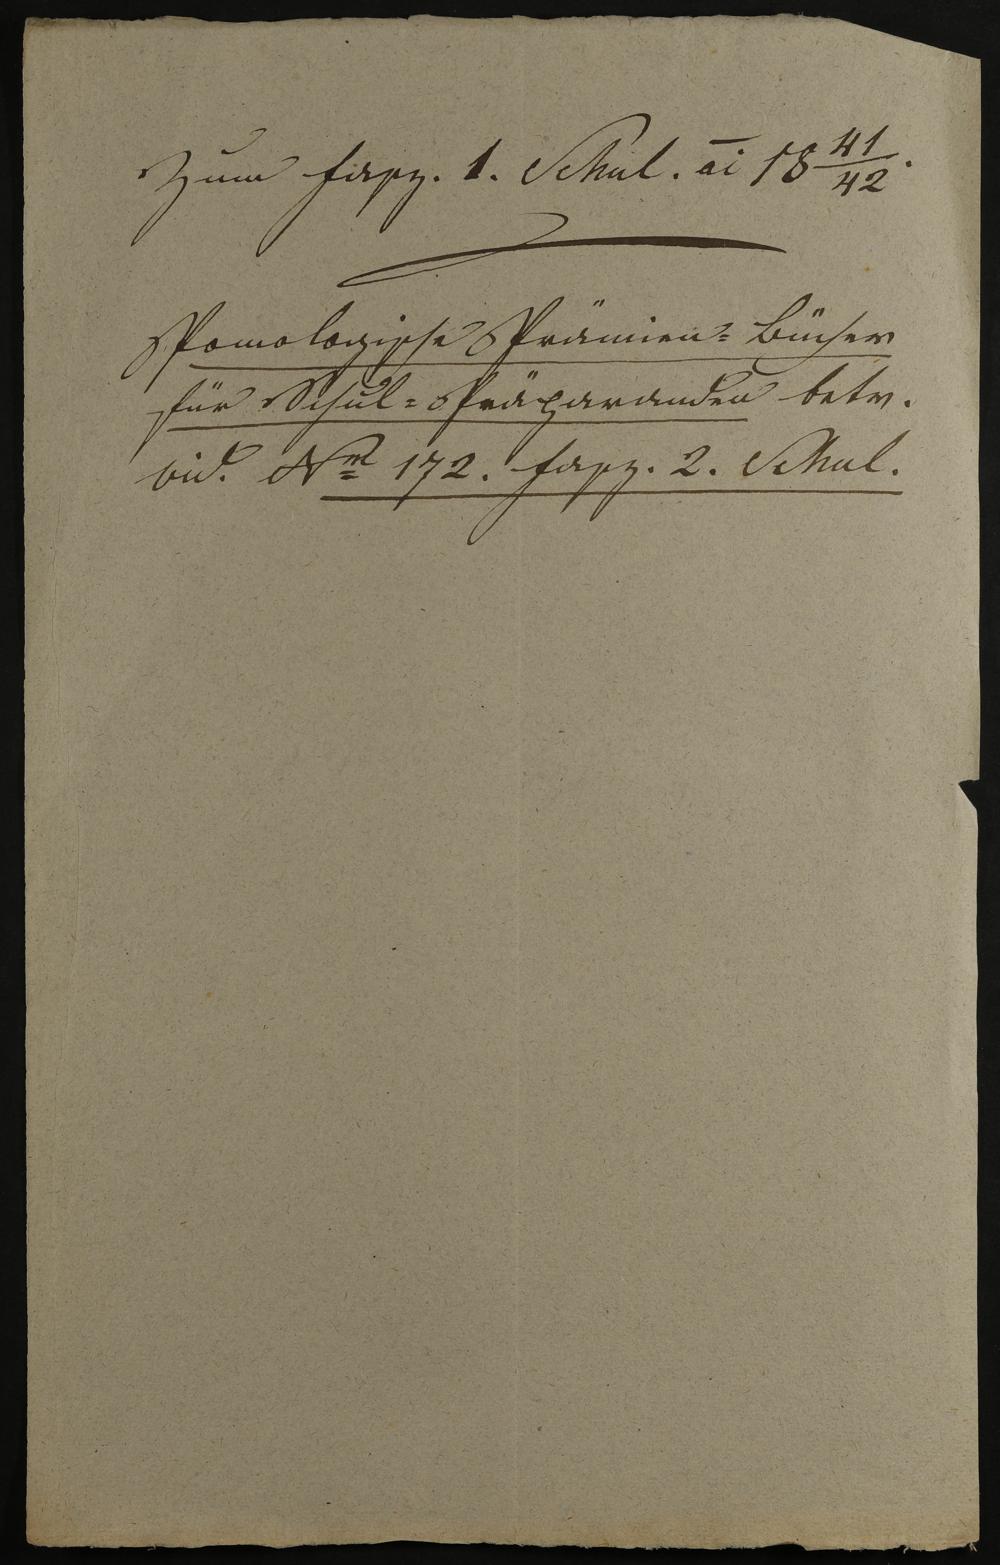 Zum Fasz. 1. Schul. ai 18 41/42.
Pomologische Prämien=Bücher
für Schul=Präparanden betr.
vid. Nro 172. Fasz. 2. Schul.